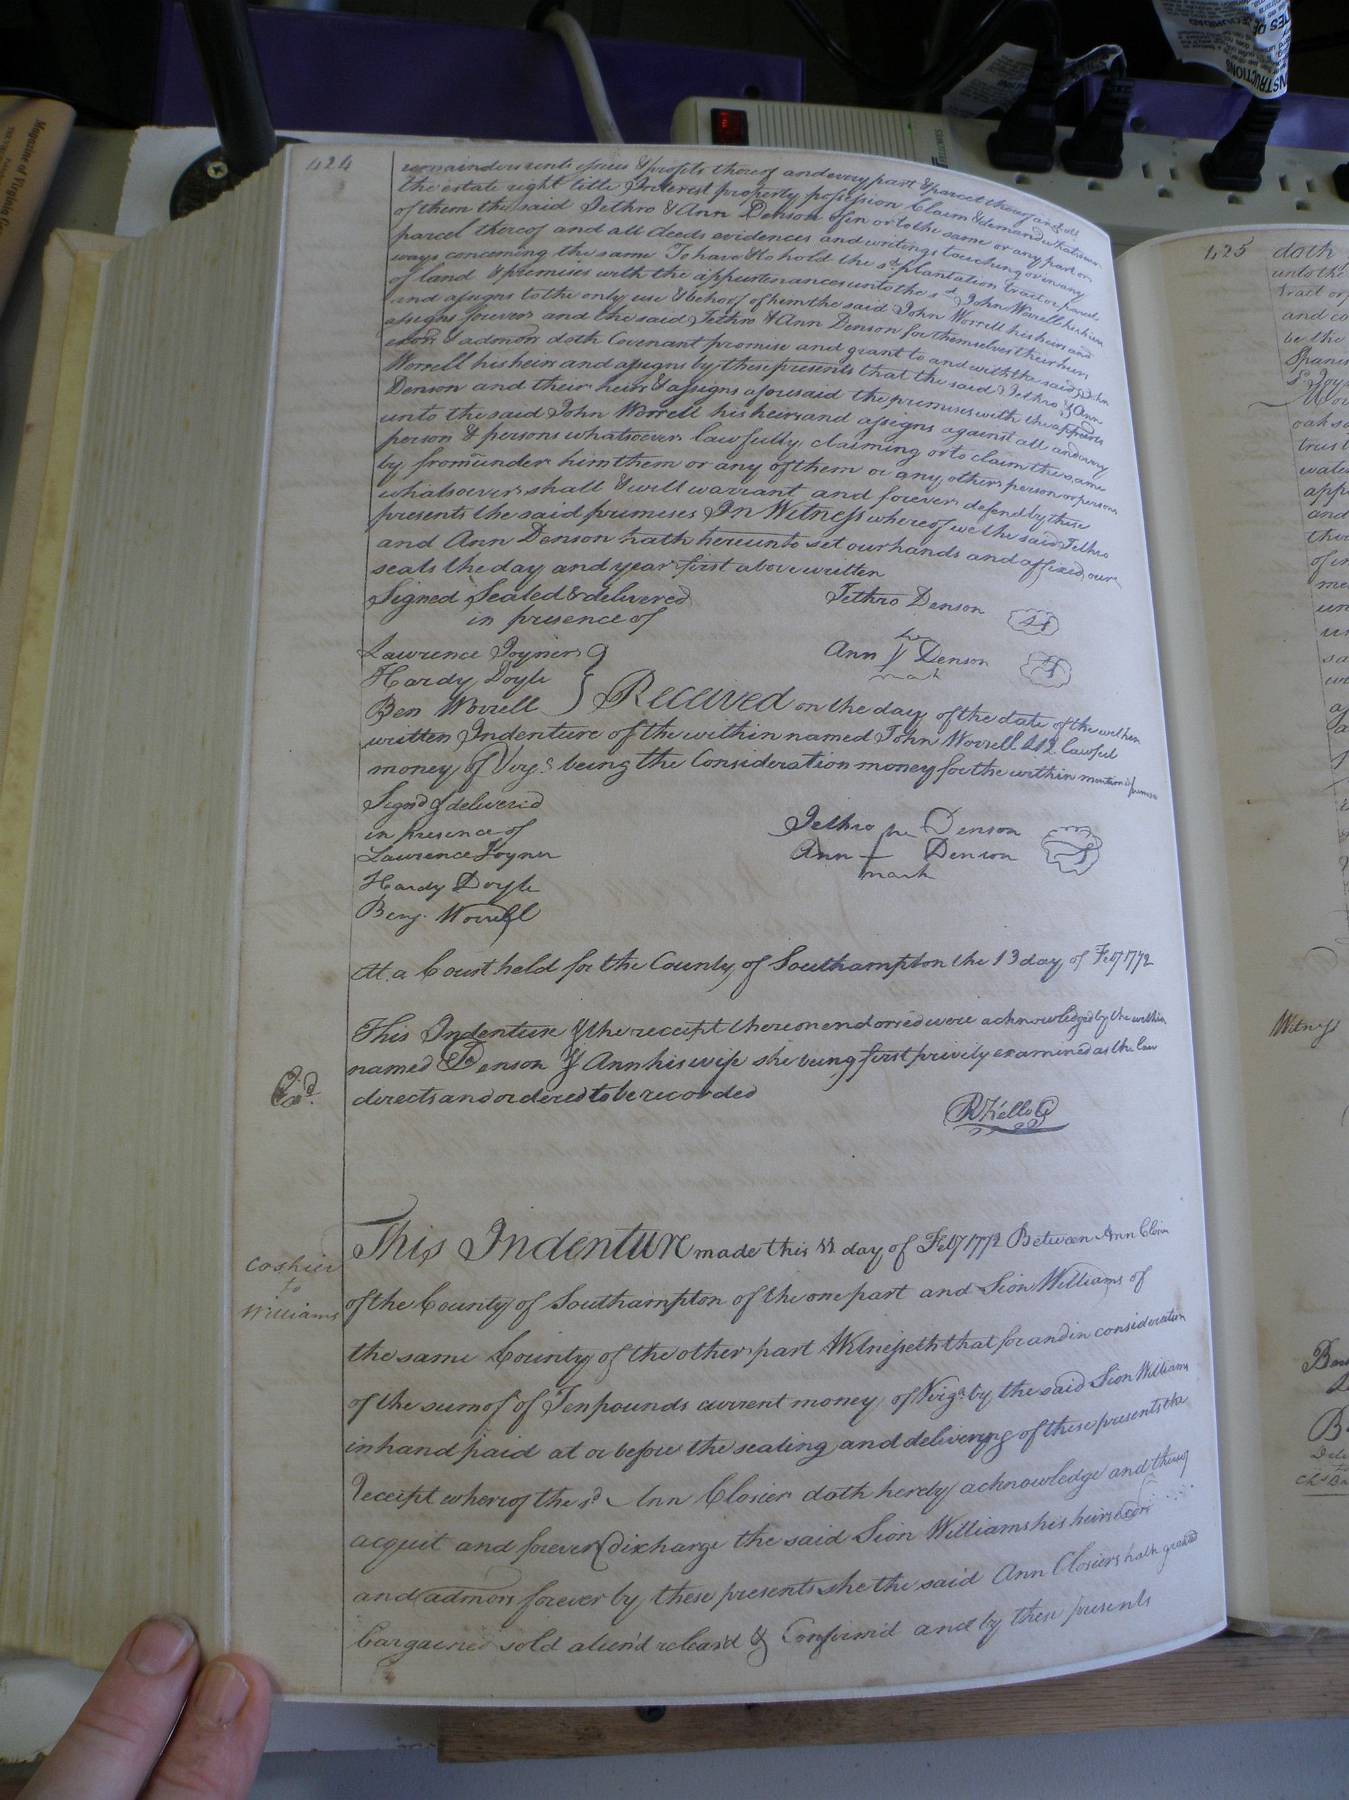 424
remainders rents issues & profits thereof and every part & parcel thereof and all
the estate right title Interest property possession Claim & demand whatsoever
of them the said Jethro & Ann Denson of in or to the same or any part or
parcel thereof and all deeds evidences and writings touching or in any
ways concerning the same To have & to hold the sd plantation tract or parcel
of land & premises with the appurtenances unto the sd John Worrell his heirs
and assigns to the only use & behoof of him the said John Worrell his heirs and
assigns forever and the said Jethro & Ann Denson for themselves their heirs
exors & admors doth Covenant promise and grant to and with the said John
Worrell his heirs and assigns by these presents that the said Jethro & Ann
Denson and their heirs & assigns aforesaid the premises with the appurts
unto the said John Worrell his heirs and assigns against all and every
person & persons whatsoever lawfully claiming or to claim the same
by from or under him them or any of them or any other person or persons
whatsoever shall & will warrant and forever defend by these
presents the said premises In Witness whereof we the said Jethro
and Ann Denson hath hereunto set our hands and affixed our
seals the day and year first above written
Signed Sealed & delivered Jethro Denson LS
in presence of
her
Lawrence Joyner Ann Denson LS
mark
Hardy Doyle
Ben Worrell
Received on the day of the date of the within
written Indenture of the within named John Worrell lawful
money of Virga being the Consideration money for the within mention'd
Signd & delivered
in presence of Jethro her Denson
Lawrence Joyner Ann + Denson
mark
Hardy Doyle
Benj. Worrell
At a Court held for the County of Southampton the 13 day of Feby 1772
This Indenture & the receipt thereon endorsed were acknowledged by the within
named Denson & Ann his wife she being first privily examined as the law
Exd.
directs and ordered to be recorded
R Kello C
This Indenture made this day of Feby 1772 Between Ann
Coshier
to
Williams
of the County of Southampton of the one part and Sion Williams of
the same County of the other part Witnesseth that for and in consideration
of the sum of of Ten pounds current money of Virga. by the said Sion Williams
in hand paid at or before the sealing and delivering of these presents the
Receipt whereof the sd. Ann Closier doth hereby acknowledge and thereof
acquit and forever discharge the said Sion Williams his heirs exors
and admors forever by these presents she the said Ann Closiers hath granted
bargained sold alien'd releas'd & Confirm'd and by these presents
425
doth
unto the
tract or
and co
be the
oak
trust
water
app
and
Witness